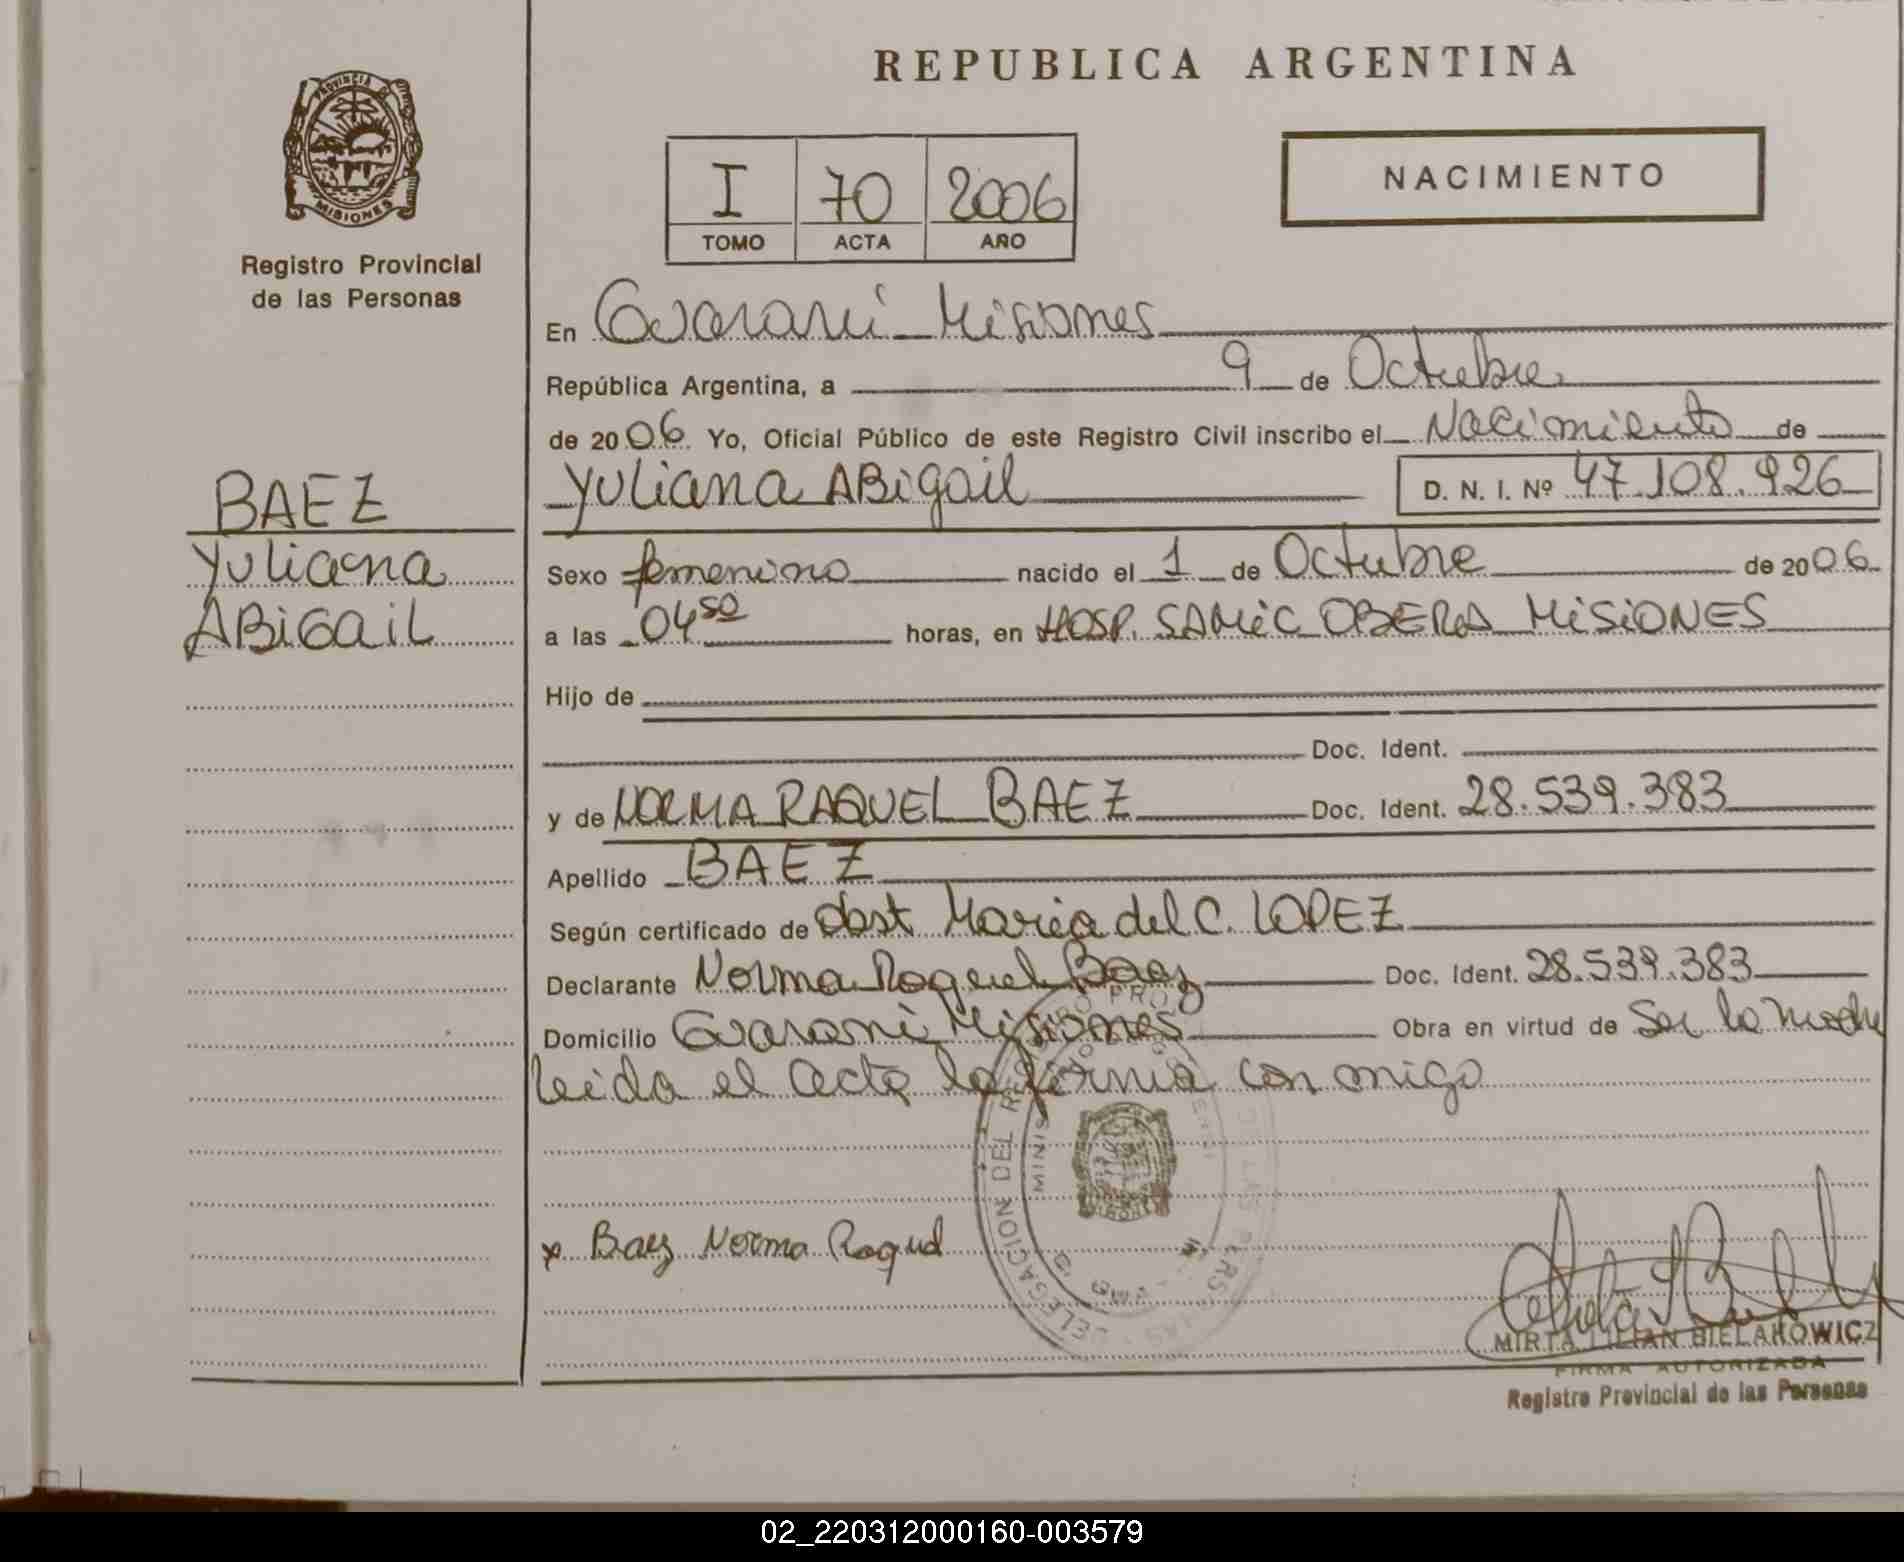 REPUBLICA ARGENTINA
PROVINCIA DE
MISIONES
Registro Provincial
de las Personas
I 70 2006
TOMO ACTA AÑO
NACIMIENTO
En Guaraní Misiones
República Argentina, a 9 de Octubre
de 2006 Yo, Oficial Público de este Registro Civil inscribo el Nacimiento de
Yuliana ABigail D. N. I. Nº 47.108.926
BAEZ
Yuliana
ABiGaiL
Sexo femenino nacido el 1 de Octubre de 2006
a las 04 50 horas, en HOSP. SAMiC OBERA MiSiONES
Hijo de
Doc. Ident.
y de NORMA RAQUEL BAEZ Doc. Ident. 28.539.383
Apellido BAEZ
Según certificado de Obst Maria del C. LOPEZ
Declarante Norma Raquel Baez Doc. Ident. 28.539.383
Domicilio Guarani Misiones Obra en virtud de Ser la madre
leida el acta la firma con migo
DELEGACION DEL REGISTRO PROV
LAS PERSONAS
x Baez Norma Raquel
MIRTA LILIAN BIELAKOWICZ
FIRMA AUTORIZADA
Registro Provincial de las Personas
02_220312000160-003579